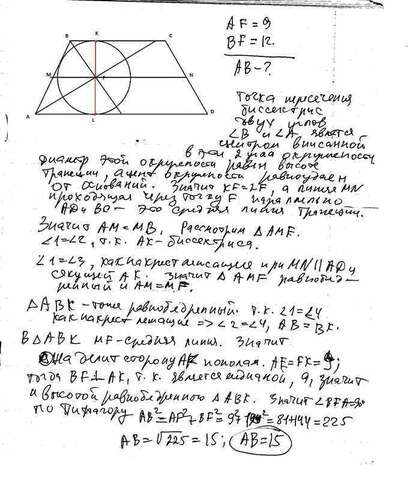 B K C
M F N
A L D
AF = 9
BF = 12.
AB - ?
Точка пересечения
биссектрис
двух углов
∠B и ∠A, является
центром вписанной
в эти 2 угла окружности
Диаметр этой окружности равен высоте
трапеции, а центр окружности равноудален
от оснований. Значит KF=LF, а линия MN
проходящая через точку F параллельно
AD и BC - это средняя линия трапеции.
Значит AM=MB. Рассмотрим △AMF.
∠1=∠2, т.к. AK - биссектриса.
∠1=∠3, как накрест лежащие при MN∥AD и
секущей AK. Значит △AMF равнобед-
ренный и AM=MF.
△ABK - тоже равнобедренный. т.к. ∠1=∠4
как накрест лежащие => ∠2=∠4, AB=BK.
В △ABK MF - средняя линия. Значит
она делит сторону AK пополам. AF=FK=9;
тогда BF⊥AK, т.к. является медианой, а, значит
и высотой равнобедренного △ABK. Значит ∠BFA=90°
по Пифагору AB²=AF²+BF²=9²+12²=81+144=225
AB=√225=15; AB=15